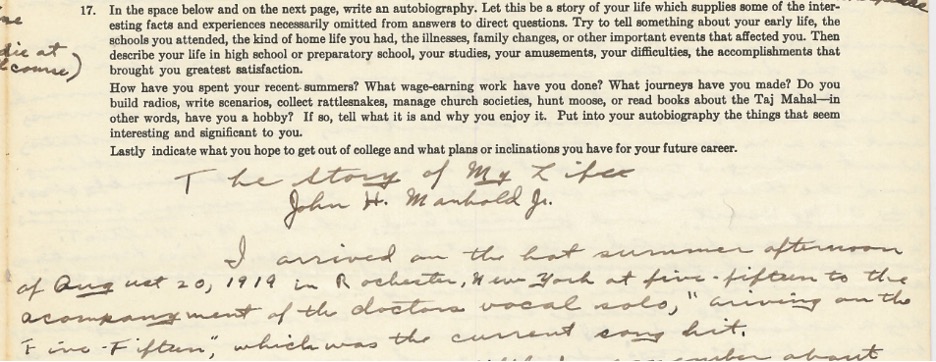 17. In the space below and on the next page, write an autobiography. Let this be a story of your life which supplies some of the inter-
esting facts and experiences necessarily omitted from answers to direct questions. Try to tell something about your early life, the
schools you attended, the kind of home life you had, the illnesses, family changes, or other important events that affected you. Then
describe your life in high school or preparatory school, your studies, your amusements, your difficulties, the accomplishments that
brought you greatest satisfaction.
How have you spent your recent summers? What wage-earning work have you done? What journeys have you made? Do you
build radios, write scenarios, collect rattlesnakes, manage church societies, hunt moose, or read books about the Taj Mahal—in
other words, have you a hobby? If so, tell what it is and why you enjoy it. Put into your autobiography the things that seem
interesting and significant to you.
Lastly indicate what you hope to get out of college and what plans or inclinations you have for your future career.
The Story of My Life
John H. Manhold Jr.
I arrived on the hot summer afternoon
of August 20, 1919 in Rochester, New York at five-fifteen to the
acompanyment of the doctors vocal solo, "ariving on the
Five-Fifteen", which was the current song hit.
remember about